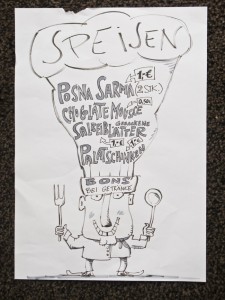 SPEISEN
POSNA SARMA (2 STK) 1,-€
CHOGLATE MOUSSE 0,50€
SALBEIBLÄTTER GEBACKENE
1,-€
PALATSCHINKEN
BONS
BEI GETRÄNKE